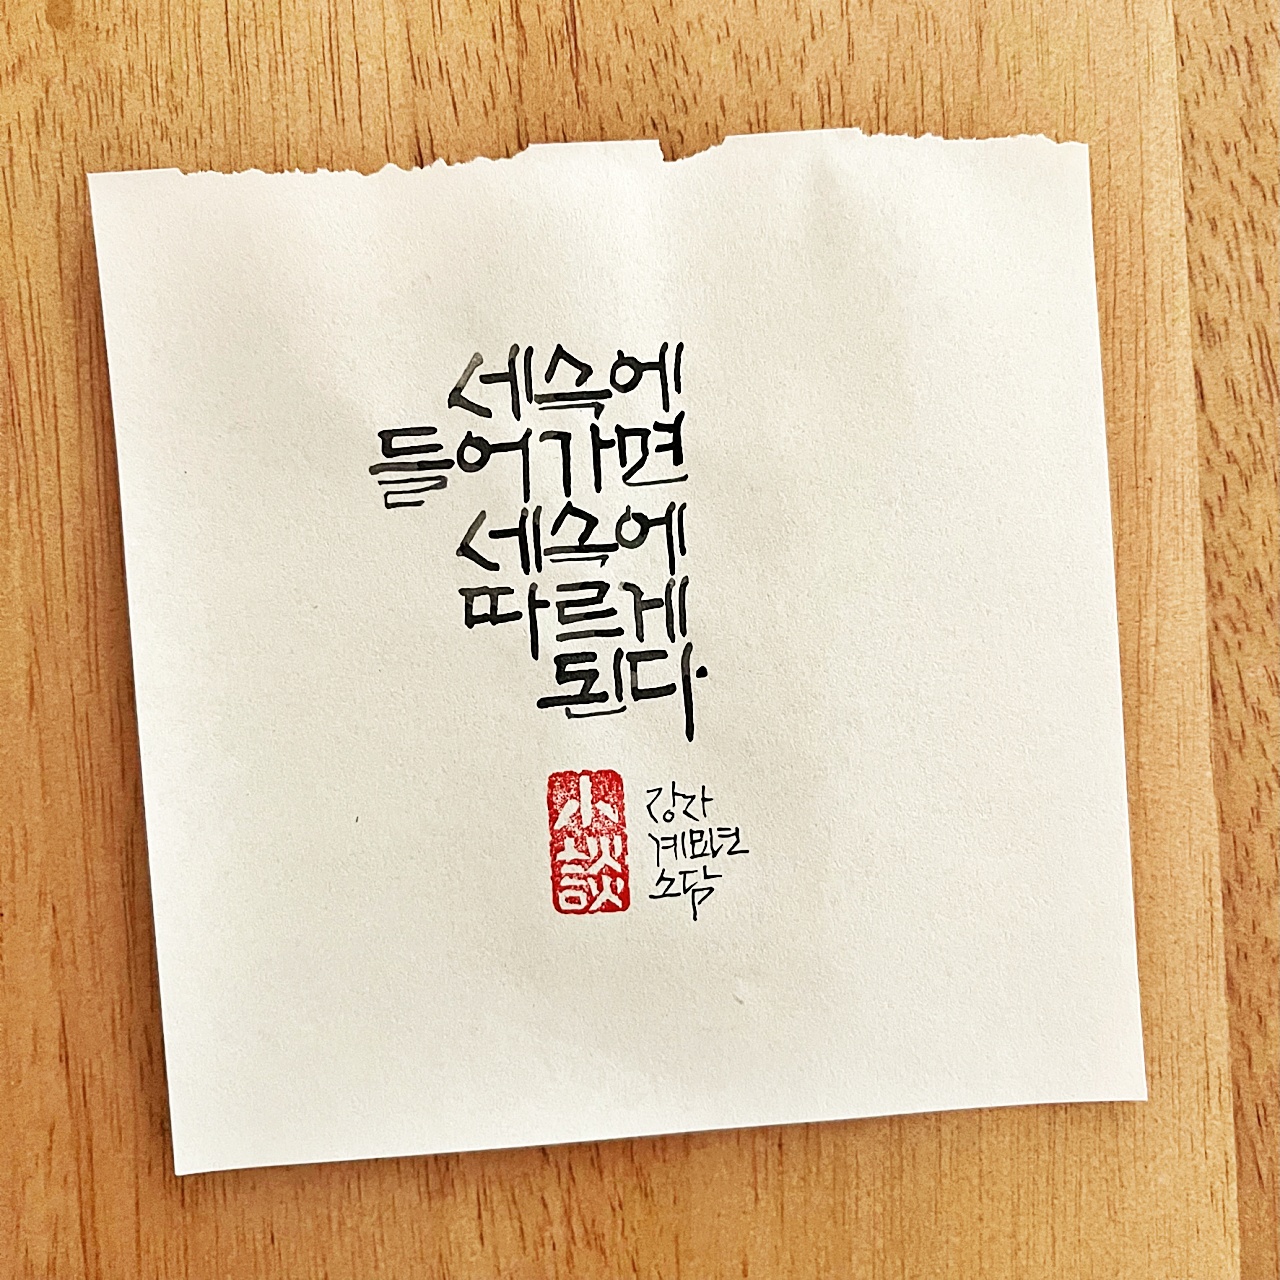 세속에
들어가면
세속에
따르게
된다.
小談
장자
계묘년
소담